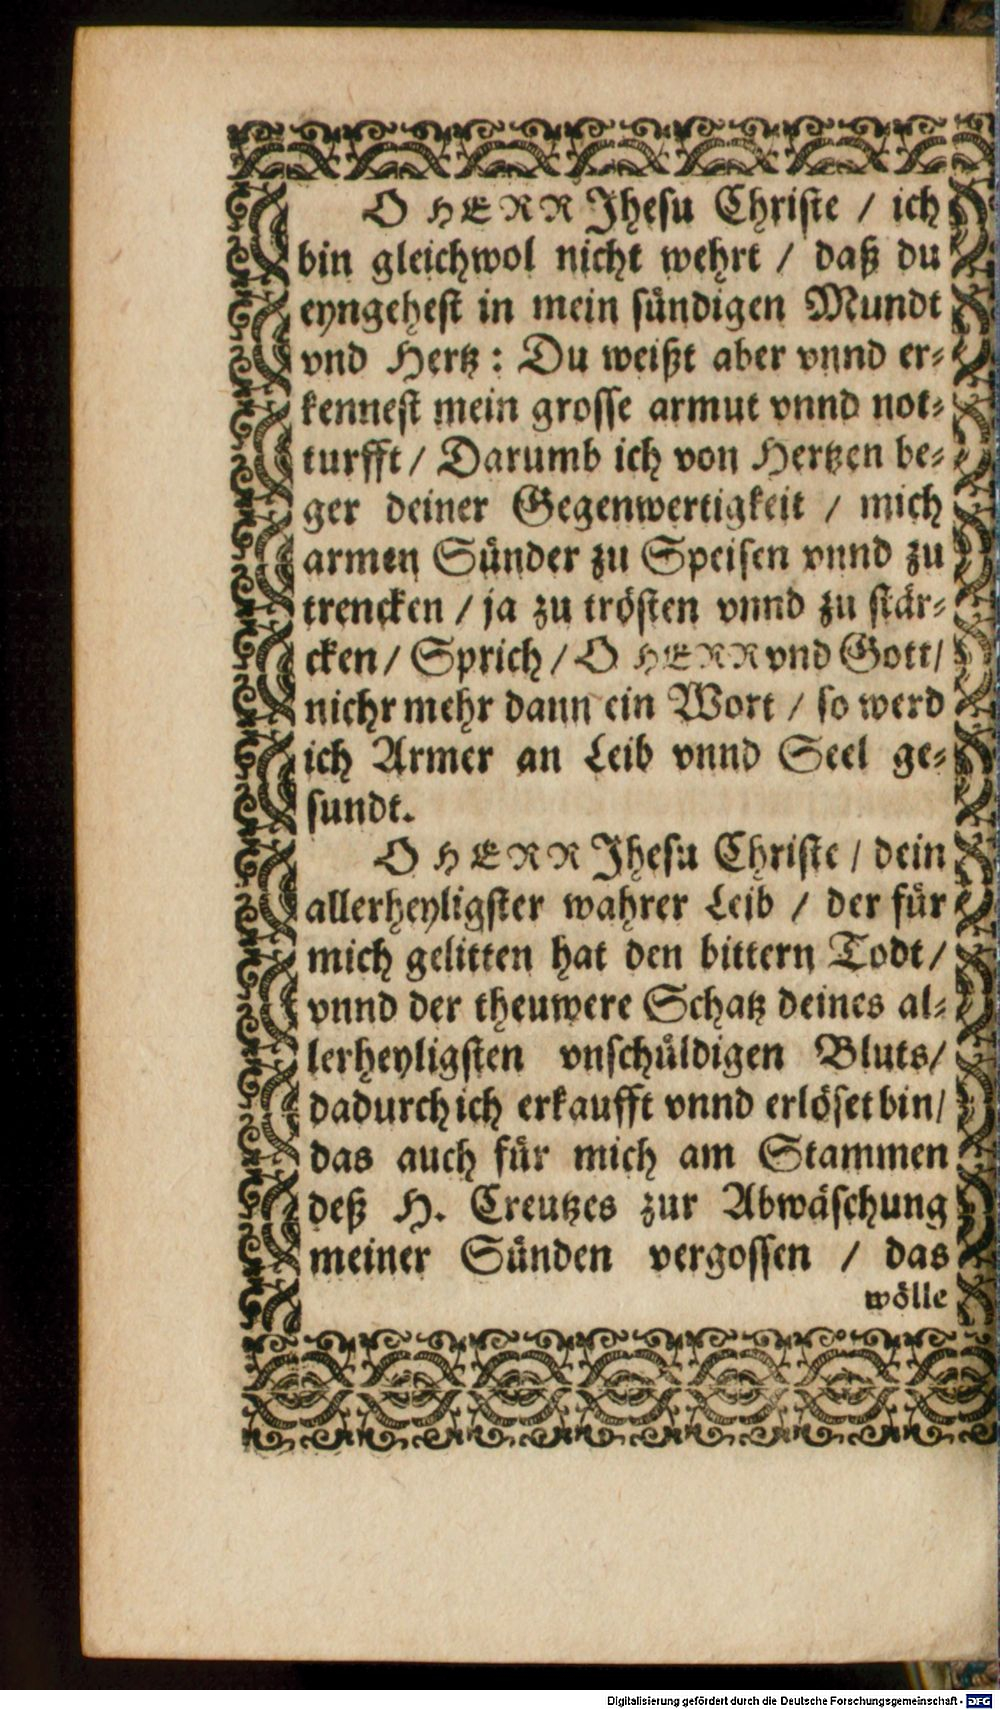 O HERR Jhesu Christe / ich
bin gleichwol nicht wehrt / daß du
eyngehest in mein sündigen Mundt
vnd Hertz : Du weißt aber vnnd er-
kennest mein grosse armut vnnd not-
turfft / Darumb ich von Hertzen be-
ger deiner Gegenwertigkeit / mich
armen Sünder zu Speisen vnnd zu
trencken / ja zu trösten vnnd zu stär-
cken / Sprich / O HERR vnd Gott /
nichr mehr dann ein Wort / so werd
ich Armer an Leib vnnd Seel ge-
sundt.
O HERR Jhesu Christe / dein
allerheyligster wahrer Leib / der für
mich gelitten hat den bittern Todt /
vnnd der theuwere Schatz deines al-
lerheyligsten vnschüldigen Bluts /
dadurch ich erkaufft vnnd erlöset bin /
das auch für mich am Stammen
deß H. Creutzes zur Abwäschung
meiner Sünden vergossen / das
wölle
Digitalisierung gefördert durch die Deutsche Forschungsgemeinschaft - DFG